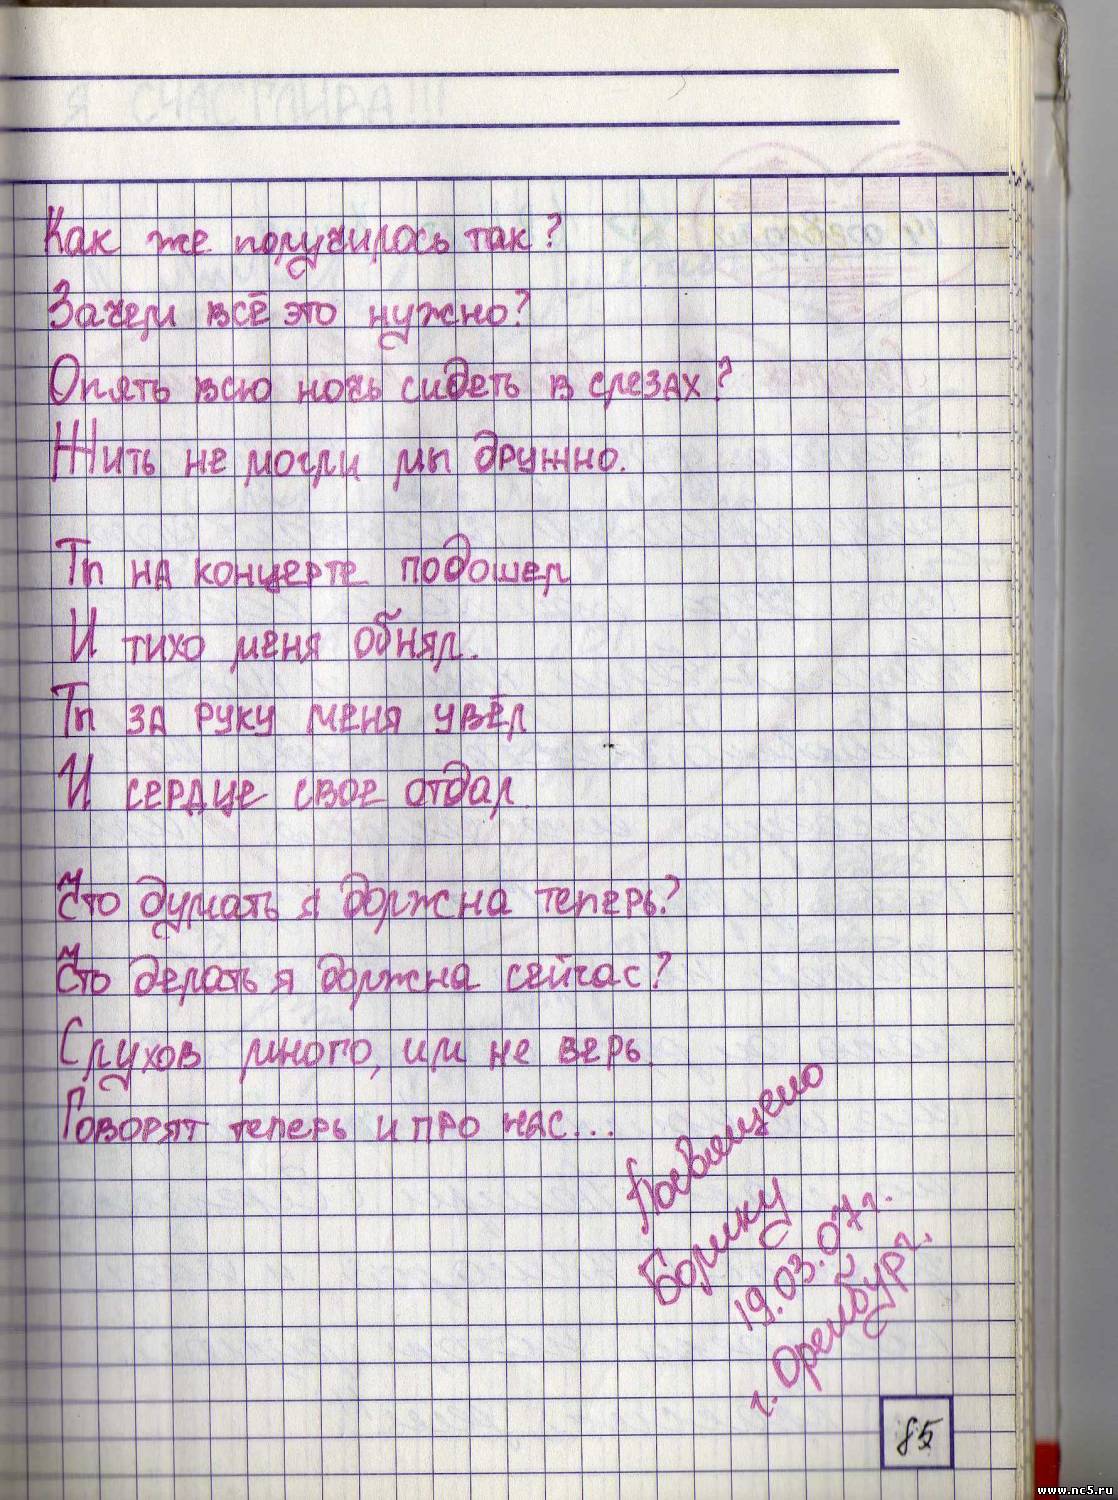 Я СЧАСТЛИВА!!!
Как же получилось так?
Зачем всё это нужно?
Опять всю ночь сидеть в слезах?
Жить не могли мы дружно.
Ты на концерте подошел
И тихо меня обнял.
Ты за руку меня увёл
И сердце свое отдал
Что думать я должна теперь?
Что делать я должна сейчас?
Слухов много, им не верь.
Говорят теперь и про нас...
Посвящено
19.03.07г.
г. Оренбург.
85
www.nc5.ru